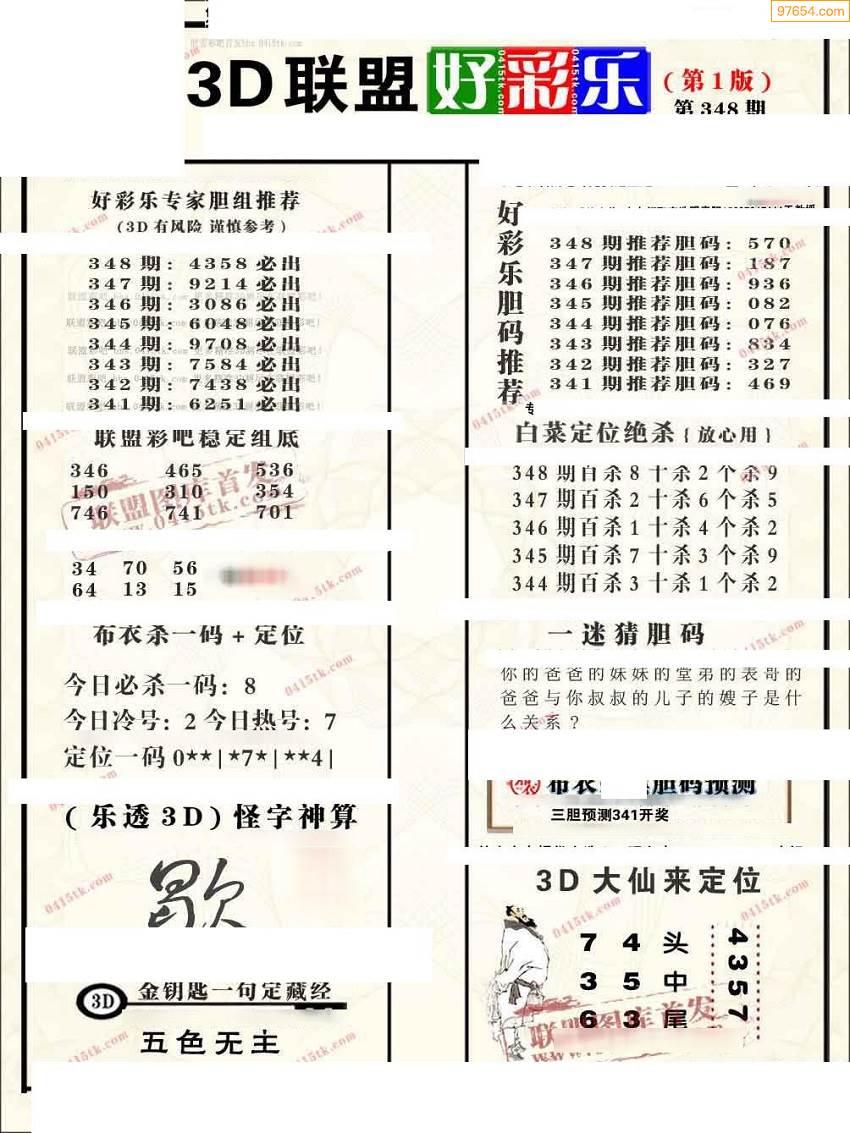 97654.com
3D联盟好彩乐
(第1版)
第348期
好彩乐专家胆组推荐
(3D有风险 谨慎参考)
348期: 4358必出
347期: 9214必出
346期: 3086必出
345期: 6048必出
344期: 9708必出
343期: 7584必出
342期: 7438必出
341期: 6251必出
联盟彩吧稳定组底
346 465 536
150 310 354
746 741 701
34 70 56
64 13 15
布衣杀一码+定位
今日必杀一码: 8
今日冷号: 2 今日热号: 7
定位一码0**|*7*|**4|
(乐透3D)怪字神算
歇
3D 金钥匙一句定藏经
五色无主
好彩乐胆码推荐
348期推荐胆码: 570
347期推荐胆码: 187
346期推荐胆码: 936
345期推荐胆码: 082
344期推荐胆码: 076
343期推荐胆码: 834
342期推荐胆码: 327
341期推荐胆码: 469
白菜定位绝杀{放心用}
348期百杀8十杀2个杀9
347期百杀2十杀6个杀5
346期百杀1十杀4个杀2
345期百杀7十杀3个杀9
344期百杀3十杀1个杀2
一迷猜胆码
你的爸爸的妹妹的堂弟的表哥的
爸爸与你叔叔的儿子的嫂子是什
么关系?
布衣 胆码预测
三胆预测341开奖
3D大仙来定位
7 4 头
3 5 中
6 3 尾
4357
联盟图库首发
www.0415tk.com
0415tk.com